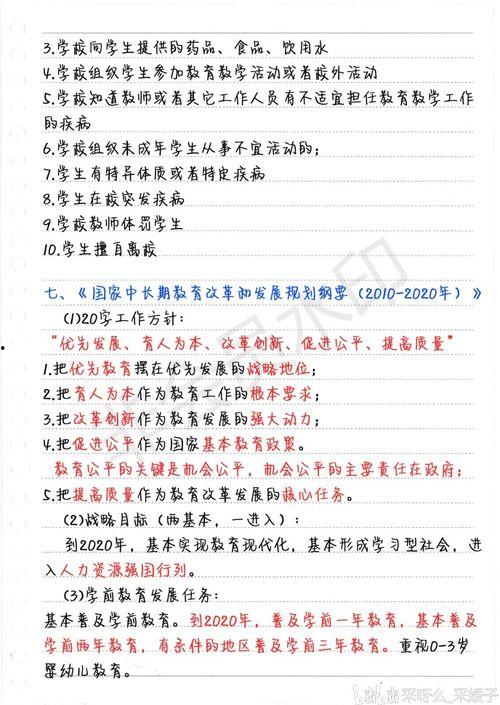 3.学校向学生提供的药品、食品、饮用水
4.学校组织学生参加教育教学活动或者校外活动
5.学校知道教师或者其它工作人员有不适宜担任教育教学工作
的疾病
6.学校组织未成年学生从事不宜活动的;
7.学生有特异体质或者特定疾病
8.学生在校突发疾病
9.学校教师体罚学生
10.学生擅自离校
七、《国家中长期教育改革和发展规划纲要（2010-2020年）》
(1)20字工作方针:
“优先发展、育人为本、改革创新、促进公平、提高质量”
1.把优先教育摆在优先发展的战略地位;
2.把育人为本作为教育工作的根本要求;
3.把改革创新作为教育发展的强大动力;
4.把促进公平作为国家基本教育政策。
教育公平的关键是机会公平，机会公平的主要责任在政府;
5.把提高质量作为教育改革发展的核心任务。
(2)战略目标（两基本，一进入）:
到2020年，基本实现教育现代化，基本形成学习型社会，进
入人力资源强国行列。
(3)学前教育发展任务:
基本普及学前教育。到2020年，普及学前一年教育，基本普及
学前两年教育，有条件的地区普及学前三年教育。重视0-3岁
婴幼儿教育。
bilibili 采呀么_采缓子